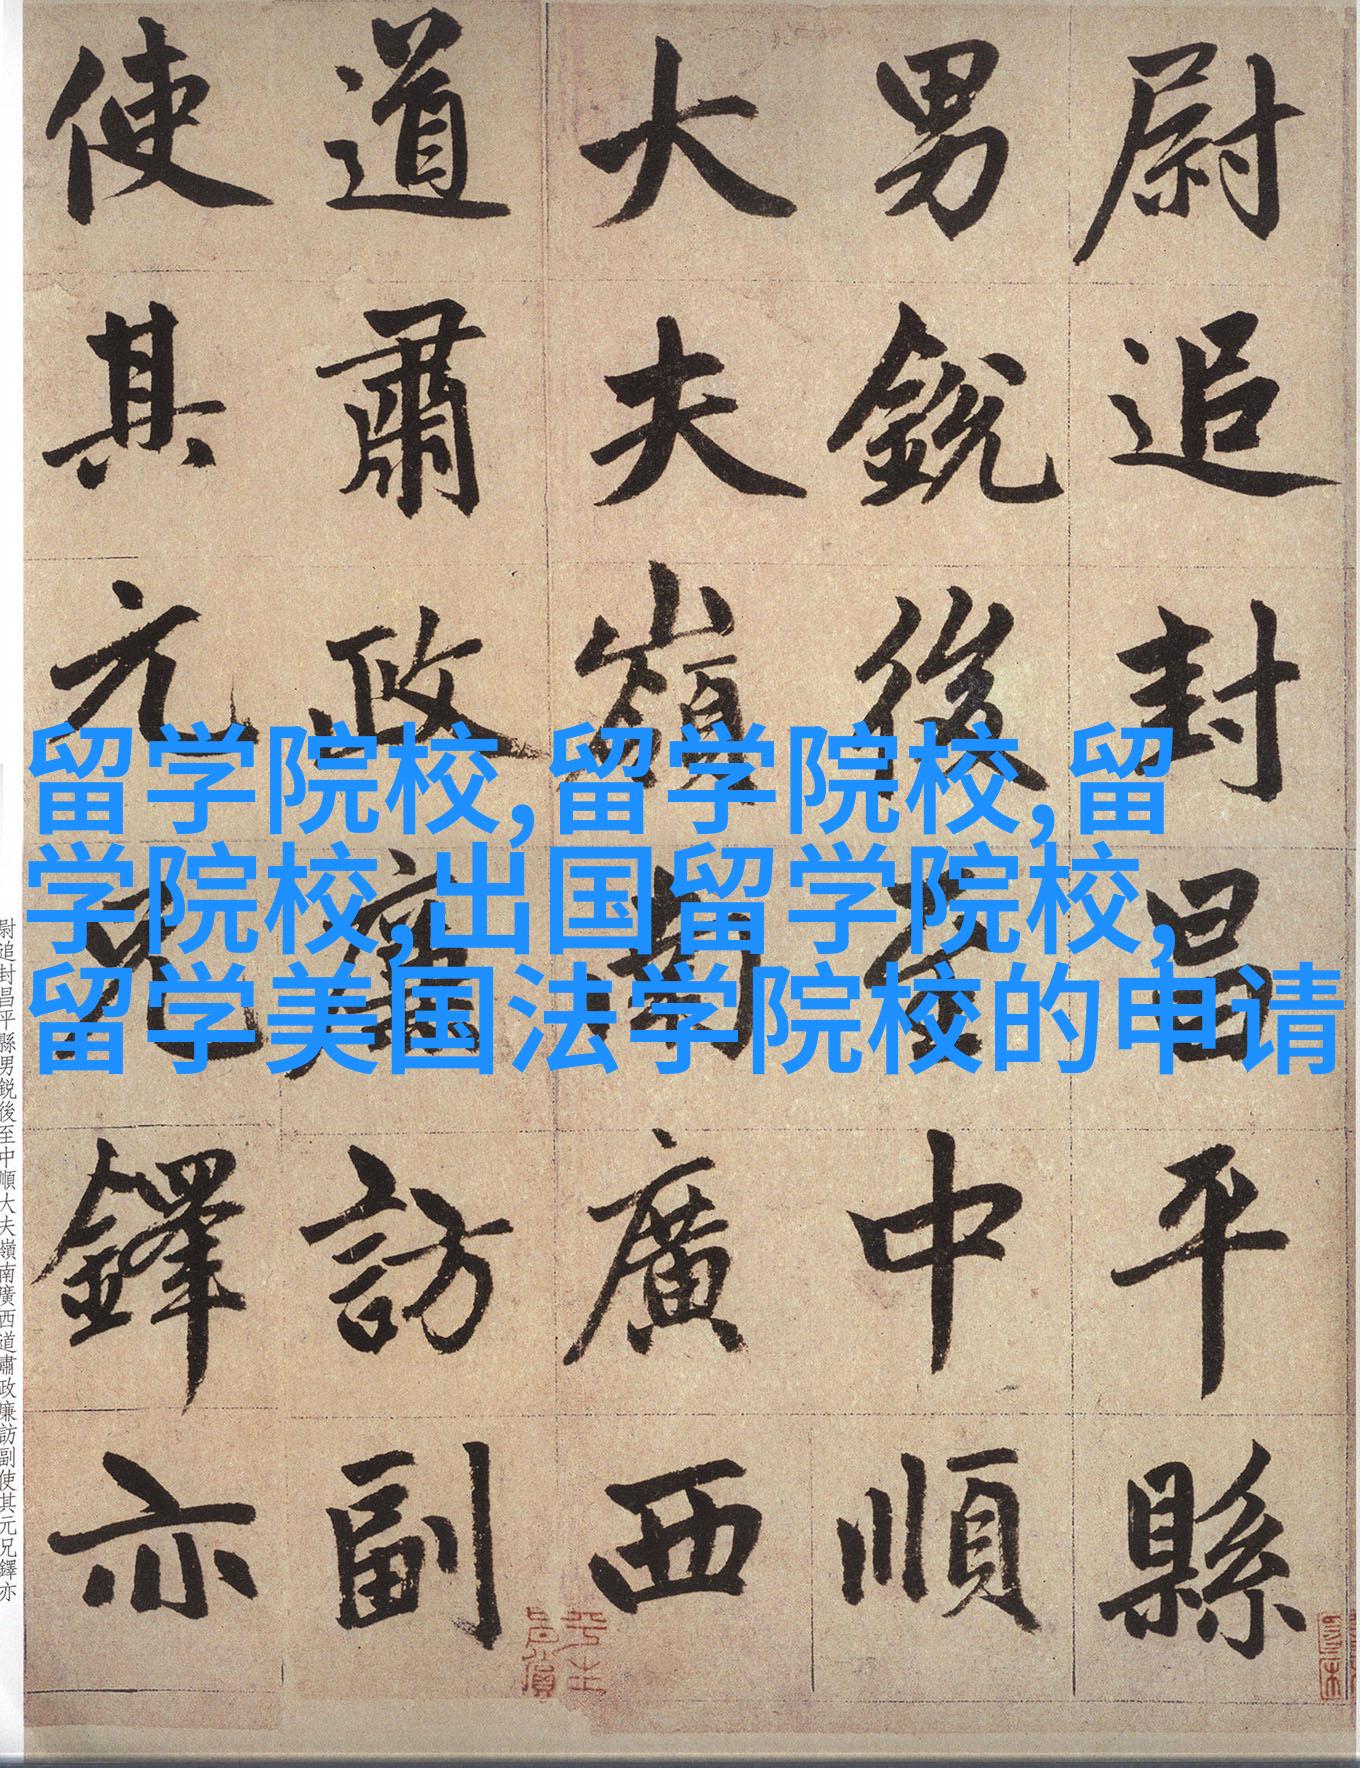 尉追封昌平縣
男銳後至中順
大夫嶺南廣西
道肅政廉訪副
使其元兄鐸亦
留学院校,留学院校,留
学院校,出国留学院校,
留学美国法学院校的申请
尉追封昌平縣男銳後至中順大夫嶺南廣西道肅政廉訪副使其元兄鐸亦